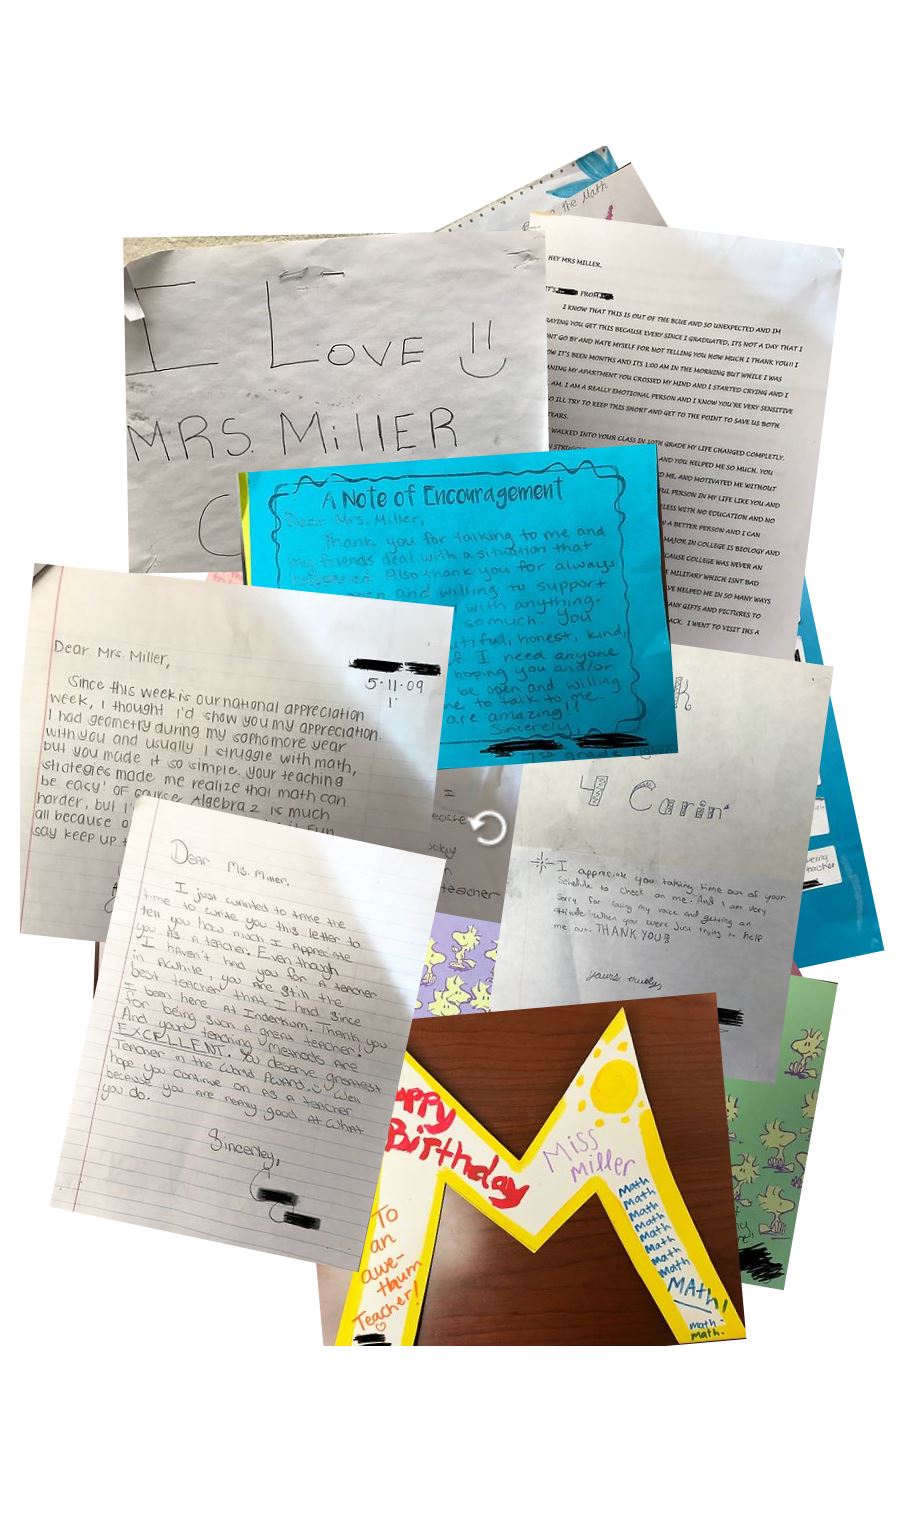 the Math
I LOVE
MRS. MillER
HEY MRS MILLER,
FROM
I KNOW THAT THIS IS OUT OF THE BLUE AND SO UNEXPECTED AND IM
YOU GET THIS BECAUSE EVERY SINCE I GRADUATED, ITS NOT A DAY THAT I
GO BY AND HATE MYSELF FOR NOT TELLING YOU HOW MUCH I THANK YOU!! I
IT'S BEEN MONTHS AND ITS 1:00 AM IN THE MORNING BUT WHILE I WAS
MY APARTMENT YOU CROSSED MY MIND AND I STARTED CRYING AND I
AM. I AM A REALLY EMOTIONAL PERSON AND I KNOW YOU'RE VERY SENSITIVE
ILL TRY TO KEEP THIS SHORT AND GET TO THE POINT TO SAVE US BOTH
TEARS.
WALKED INTO YOUR CLASS IN 10TH GRADE MY LIFE CHANGED COMPLETLY.
AND YOU HELPED ME SO MUCH. YOU
ME, AND MOTIVATED ME WITHOUT
PERSON IN MY LIFE LIKE YOU AND
WITH NO EDUCATION AND NO
A BETTER PERSON AND I CAN
MAJOR IN COLLEGE IS BIOLOGY AND
COLLEGE WAS NEVER AN
MILITARY WHICH ISNT BAD
HELPED ME IN SO MANY WAYS
GIFTS AND PICTURES TO
I WENT TO VISIT INS A
A Note of Encouragement
Dear Mrs. Miller,
Thank you for talking to me and
my friends deal with a situation that
happened. Also thank you for always
open and willing to support
with anything.
so much. You
honest, kind,
if I need anyone
hoping you and/or
be open and willing
me to talk to me.
are amazing!!
Sincerely,
7th grade
Dear Mrs. Miller,
5·11·09
Since this week is our national appreciation
week, I thought I'd show you my appreciation.
I had geometry during my sophomore year
with you and usually I struggle with math,
but you made it so simple. Your teaching
strategies made me realize that math can
be easy! Of course Algebra 2 is much
harder, but
all because
say keep up
I
teacher
4 Carin'
I appreciate you taking time out of your
schedule to check on me. And I am very
sorry for losing my voice and getting an
attitude when you were just trying to help
me out. THANK YOU!!
yours truely,
Dear Ms. Miller.
I just wanted to take the
time to write you this letter to
tell you how much I Appreciate
you as a teacher. Even though
I haven't had you for a teacher
in Awhile, you are still the
best teacher that I had since
I been here at Inderkum. Thank you
for being such a great teacher!
And your teaching methods are
EXCELLENT. You deserve greatest
Teacher in the World Award. Well
hope you continue on as a teacher
because you are really good at what
you do.
Sincerley,
Happy
Birthday
Miss
Miller
To
an
awe-
thum
Teacher!
Math
Math
Math
Math
Math
Math
Math
Math
MAth!
math-
math.